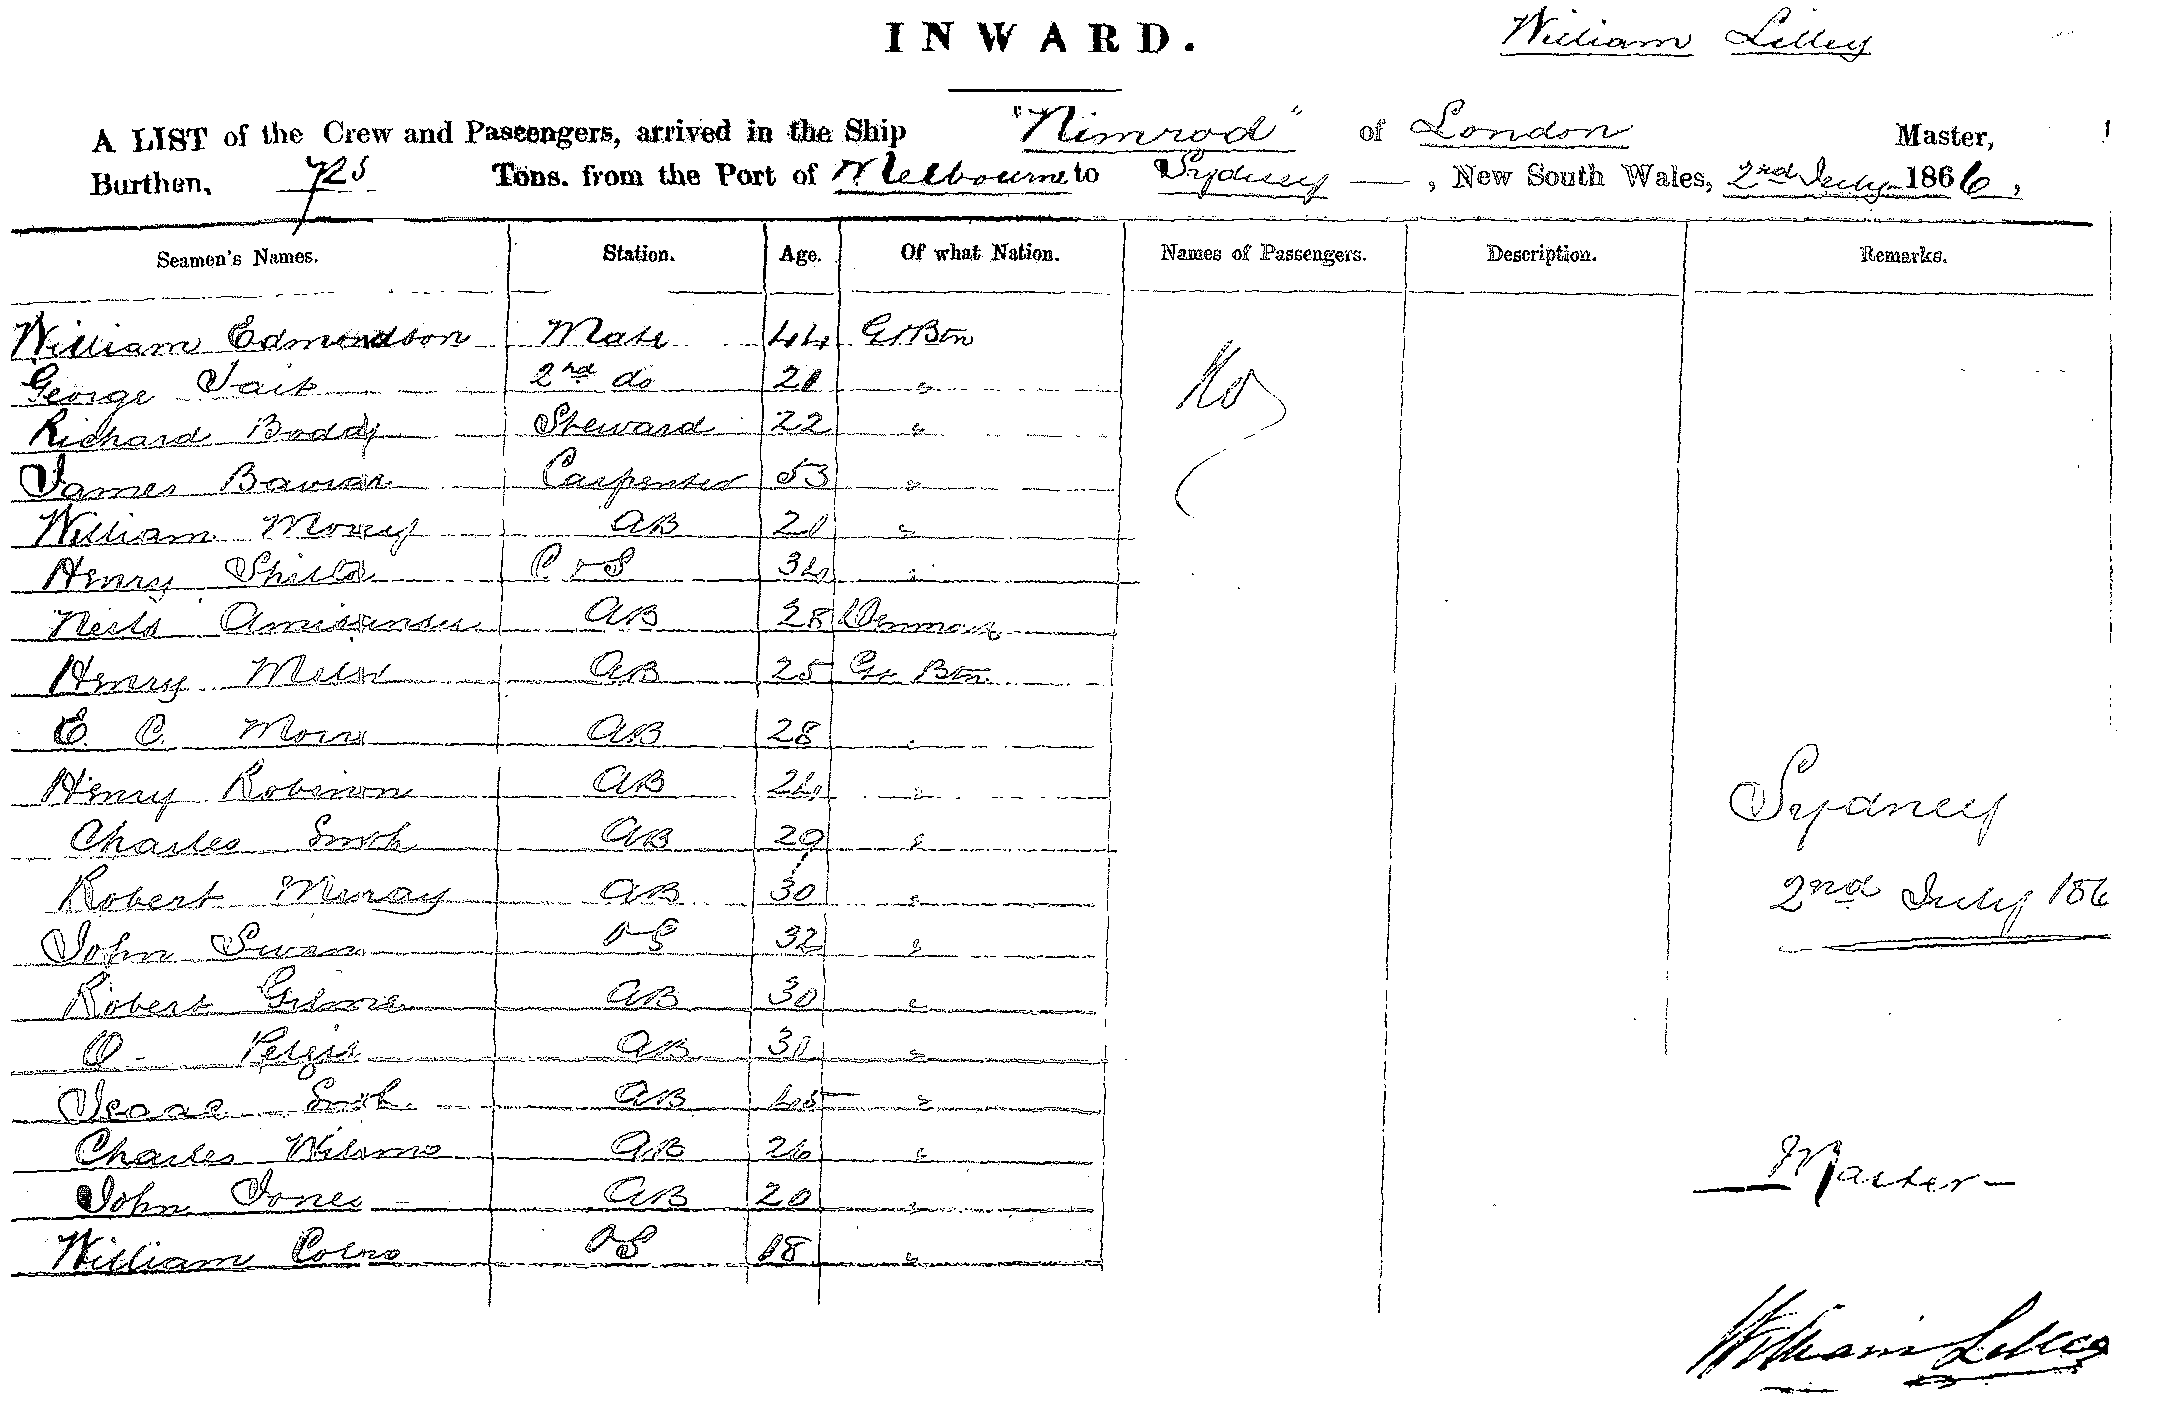 INWARD.
William Lilley
A LIST of the Crew and Passengers, arrived in the Ship "Nimrod" of London Master,
Burthen, 725 Tons. from the Port of Melbourne to Sydney, New South Wales, 2nd July 1866,
Seamen's Names. Station. Age. Of what Nation. Names of Passengers. Description. Remarks.
William Edmondson Mate 44 Gt Btn
George Tait 2nd do 21 "
No
Richard Boddy Steward 22 "
James Carpenter 53 "
William AB 21 "
Henry C & S 34 "
Neils AB 28 Denmark
Henry AB 25 Gt Btn
E. C. AB 28 "
Henry Robinson AB 24 "
Charles Smith AB 29 "
Sydney
Robert Muray AB 30 "
2nd July 186
John Swan OS 32 "
Robert AB 30 "
O AB 31 "
Isaac Smith AB 45 "
Charles Wilson AB 26 "
Master
John Jones AB 20 "
William OS 18 "
William Lilley